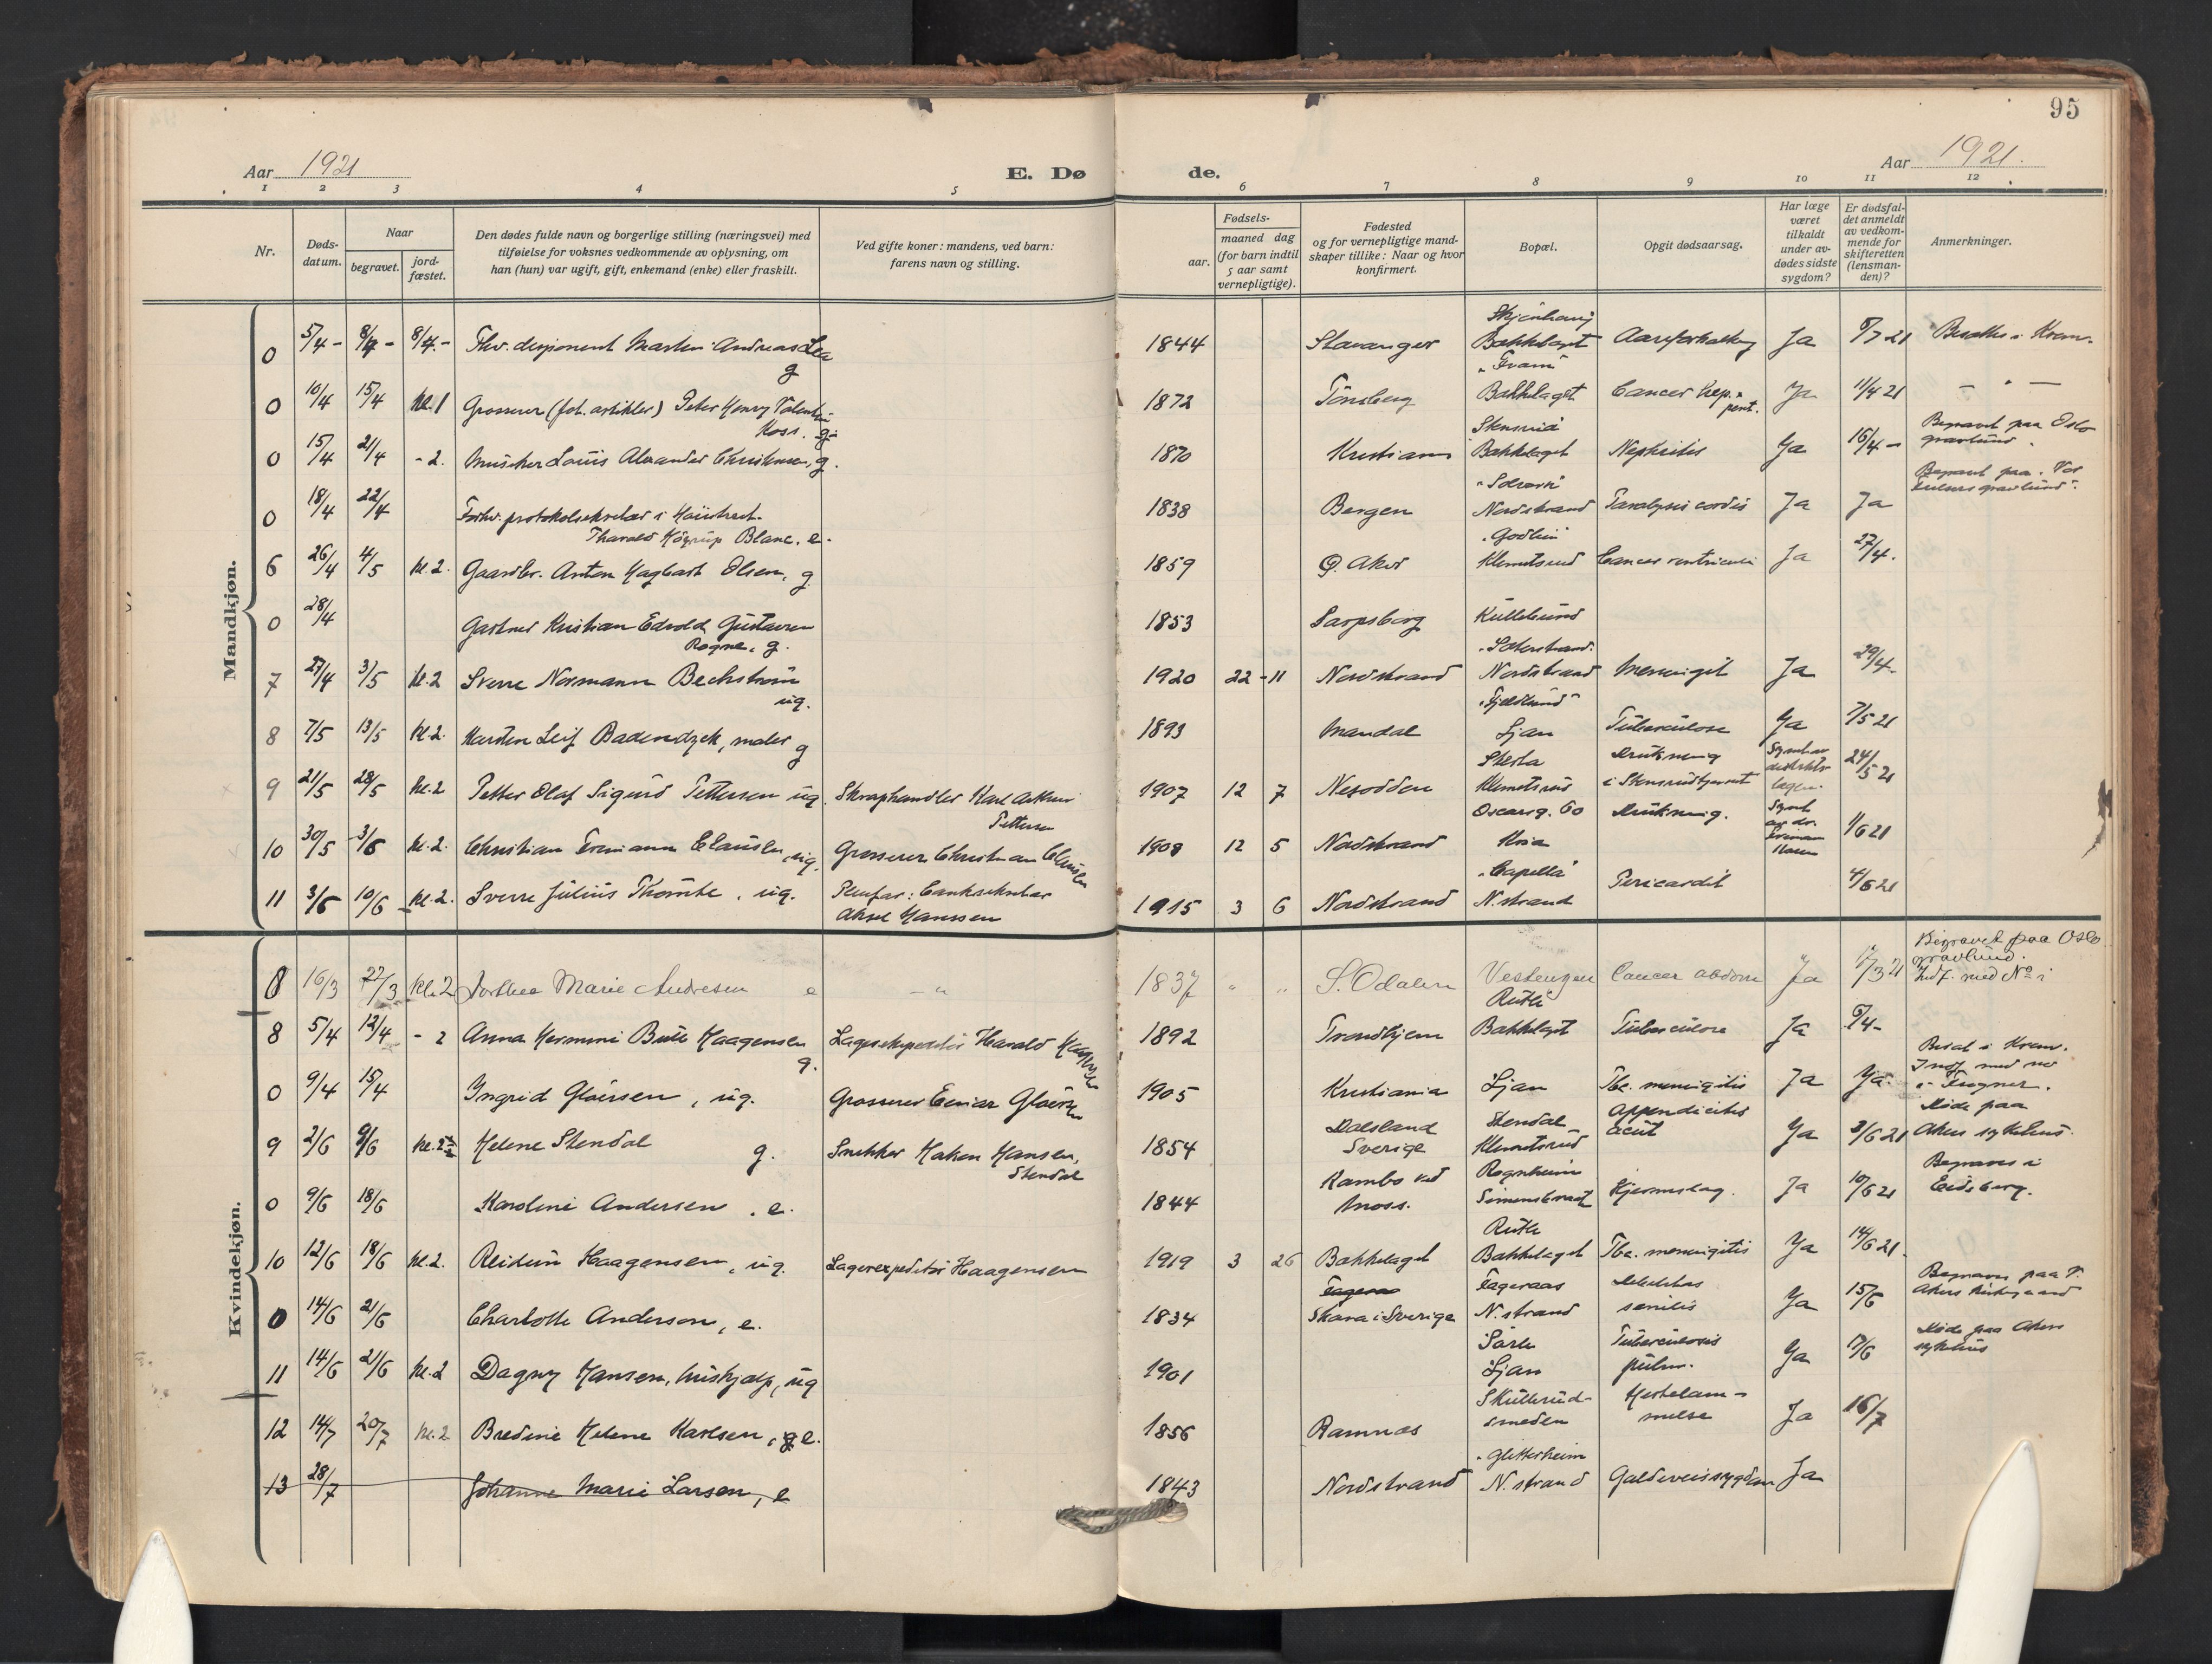 95
Aar 1921
E. Dø
de.
Aar 1921.
1 2 3 4 5 6 7 8 9 10 11 12
Nr.
Døds-
datum.
Naar
begravet.
jord-
fæstet.
Den dødes fulde navn og borgerlige stilling (næringsvei) med
tilføielse for voksnes vedkommende av oplysning, om
han (hun) var ugift, gift, enkemand (enke) eller fraskilt.
Ved gifte koner: mandens, ved barn:
farens navn og stilling.
Fødsels-
aar.
maaned dag
(for barn indtil
5 aar samt
vernepligtige).
Fødested
og for vernepligtige mand-
skaper tillike: Naar og hvor
konfirmert.
Bopæl.
Opgit dødsaarsag.
Har læge
været
tilkaldt
under av-
dødes sidste
sygdom?
Er dødsfal-
det anmeldt
av vedkom-
mende for
skifteretten
(lensman-
den)?
Anmerkninger.
Mandkjøn.
0 5/4 - 8/4 - 8/4 - Fhv. disponent Martin Andreas Lea
g
1844 Stavanger Bakkelaget Aareforkalkning Ja
0 10/4 15/4 kl. 1 Grosserer (fot. artikler) Peter Henry Valentin
Koss. g.
1872 Tönsberg "Fram" Bakkelaget Cancer hep. Ja 11/4 21 - " -
0 15/4 21/4 - 2. Musiker Louis Alexander Christensen, g.
1870 Kristiania Bakkelaget Nephritis Ja 16/4 - Begravet paa Oslo
gravlund.
0 18/4 22/4 Forhv. protokolsekretær i Höiesteret.
Tharald Höyrup Blanc, e.
1838 Bergen Nordstrand Paralysis cordis Ja Ja Begravet paa Vor
Frelsers gravlund.
6 26/4 4/5 kl. 2. Gaardbr. Anton Hagbart Olsen, g.
1859 Ø. Aker Klemetsrud Cancer ventriculi Ja 27/4.
0 28/4 Gartner Kristian Edvold Gustavsen
Rogne, g.
1853 Sarpsborg
7 27/4 3/5 kl. 2 Sverre Normann Bechström
ug.
1920 22 - 11 Nordstrand Nordstrand Meningit Ja 29/4.
8 7/5 13/5 kl. 2. Karsten Leif Badendyck, maler g
1893 Mandal Ljan Tuberculose Ja 7/5 21
9 21/5 28/5 kl. 2 Petter Olaf Sigurd Pettersen ug. Skraphandler Karl Arthur
Pettersen
1907 12 7 Nesodden Klemetsrud Drukning
i Stensrudtjernet 24/5 21
10 30/5 3/6 kl. 2. Christian Fremann Clausen, ug. Grosserer Christian Clausen
1908 12 5 Nordstrand Oscarsg. 60
Kria Drukning. 1/6 21
11 3/6 10/6 kl. 2. Sverre Julius Thomte, ug. Pleiefar: Banksekretær
Aksel Hanssen
1915 3 6 Nordstrand "Capella"
N. strand Pericardit 4/6 21
Kvindekjøn.
0 16/3 22/3 kl. 2 Dorthea Marie Andresen e - "
1837 " " S. Odalen Vestengen Cancer abdom Ja 17/3 21 Begravet paa Oslo
gravlund.
Indf. med No i
8 5/4 12/4 - 2 Anna Hermine Bull Haagensen
g. Lagerekspeditör Harald Haagensen
1892 Trondhjem Ruth
Bakkelaget Tuberculose Ja
0 9/4 15/4 Ingrid Gloersen, ug. Grosserer Einar Gloersen
1905 Kristiania Ljan Tbc. meningitis Ja Ja. Brændt i Krem.
Indf. med no
i Frogner.
9 2/6 9/6 kl. 2½ Helene Stendal g. Snekker Haken Hansen,
Stendal
1854 Dalsland
Sverige Stendal
Klemetsrud Appendicitis
acut Ja 3/6 21 Døde paa
Akers sykehus.
0 9/6 18/6 Karoline Andersen, e.
1844 Kambo ved
Moss. Rognheim
Simensbraat Hjerneslag. Ja 10/6 21 Begraves i
Eidsberg.
10 12/6 18/6 kl. 2. Reidun Haagensen, ug. Lagerexpeditør Haagensen
1919 3 26 Bakkelaget Ruth
Bakkelaget Tbc. meningitis Ja 14/6 21.
0 14/6 21/6 Charlotte Anderson, e.
1834 Skara i Sverige Fageraas
N. strand senilis Ja 15/6 Begraves paa V.
Akers kirkegaard
11 14/6 21/6 kl. 2 Dagny Hansen, hushjælp, ug
1901 Ljan Tuberculosis
pulm. Ja 17/6 Døde paa Akers
sykehus
12 14/7 20/7 kl. 2 Bredine Helene Karlsen, g e.
1856 Ramnæs Skullerud-
smeden Hjertelam-
melse Ja 16/7
13 28/7 Johanne Marie Larsen, e
1843 Nordstrand "Glitterheim
N. strand Galdeveissygdom Ja